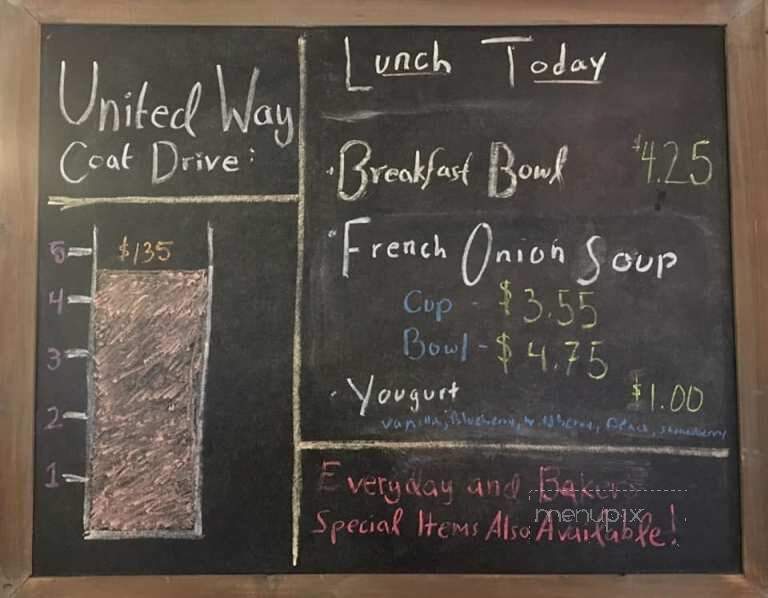 United Way
Coat Drive:
5
$135
4
3
2
1
Lunch Today
· Breakfast Bowl $4.25
· French Onion Soup
Cup - $3.55
Bowl - $4.75
· Yougurt $1.00
Vanilla, Blueberry, Peach, strawberry
Everyday and Bakery
Special Items Also Available!
menupix